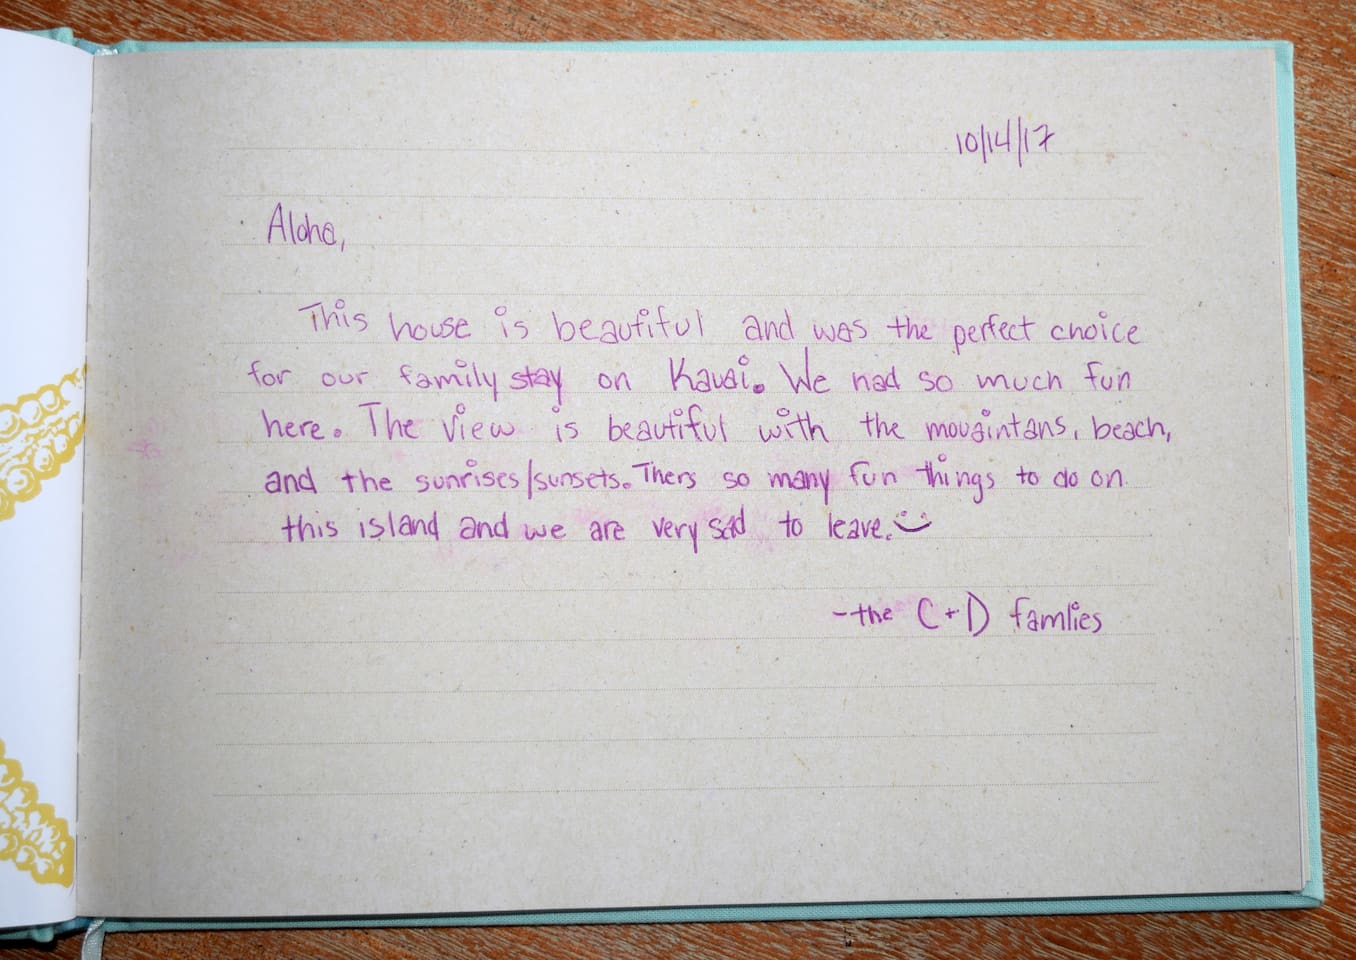 10/14/17
Aloha,
This house is beautiful and was the perfect choice
for our family stay on Kauai. We had so much fun
here. The view is beautiful with the mouaintans, beach,
and the sunrises/sunsets. Thers so many fun things to do on
this island and we are very sad to leave.
-the C+D famlies